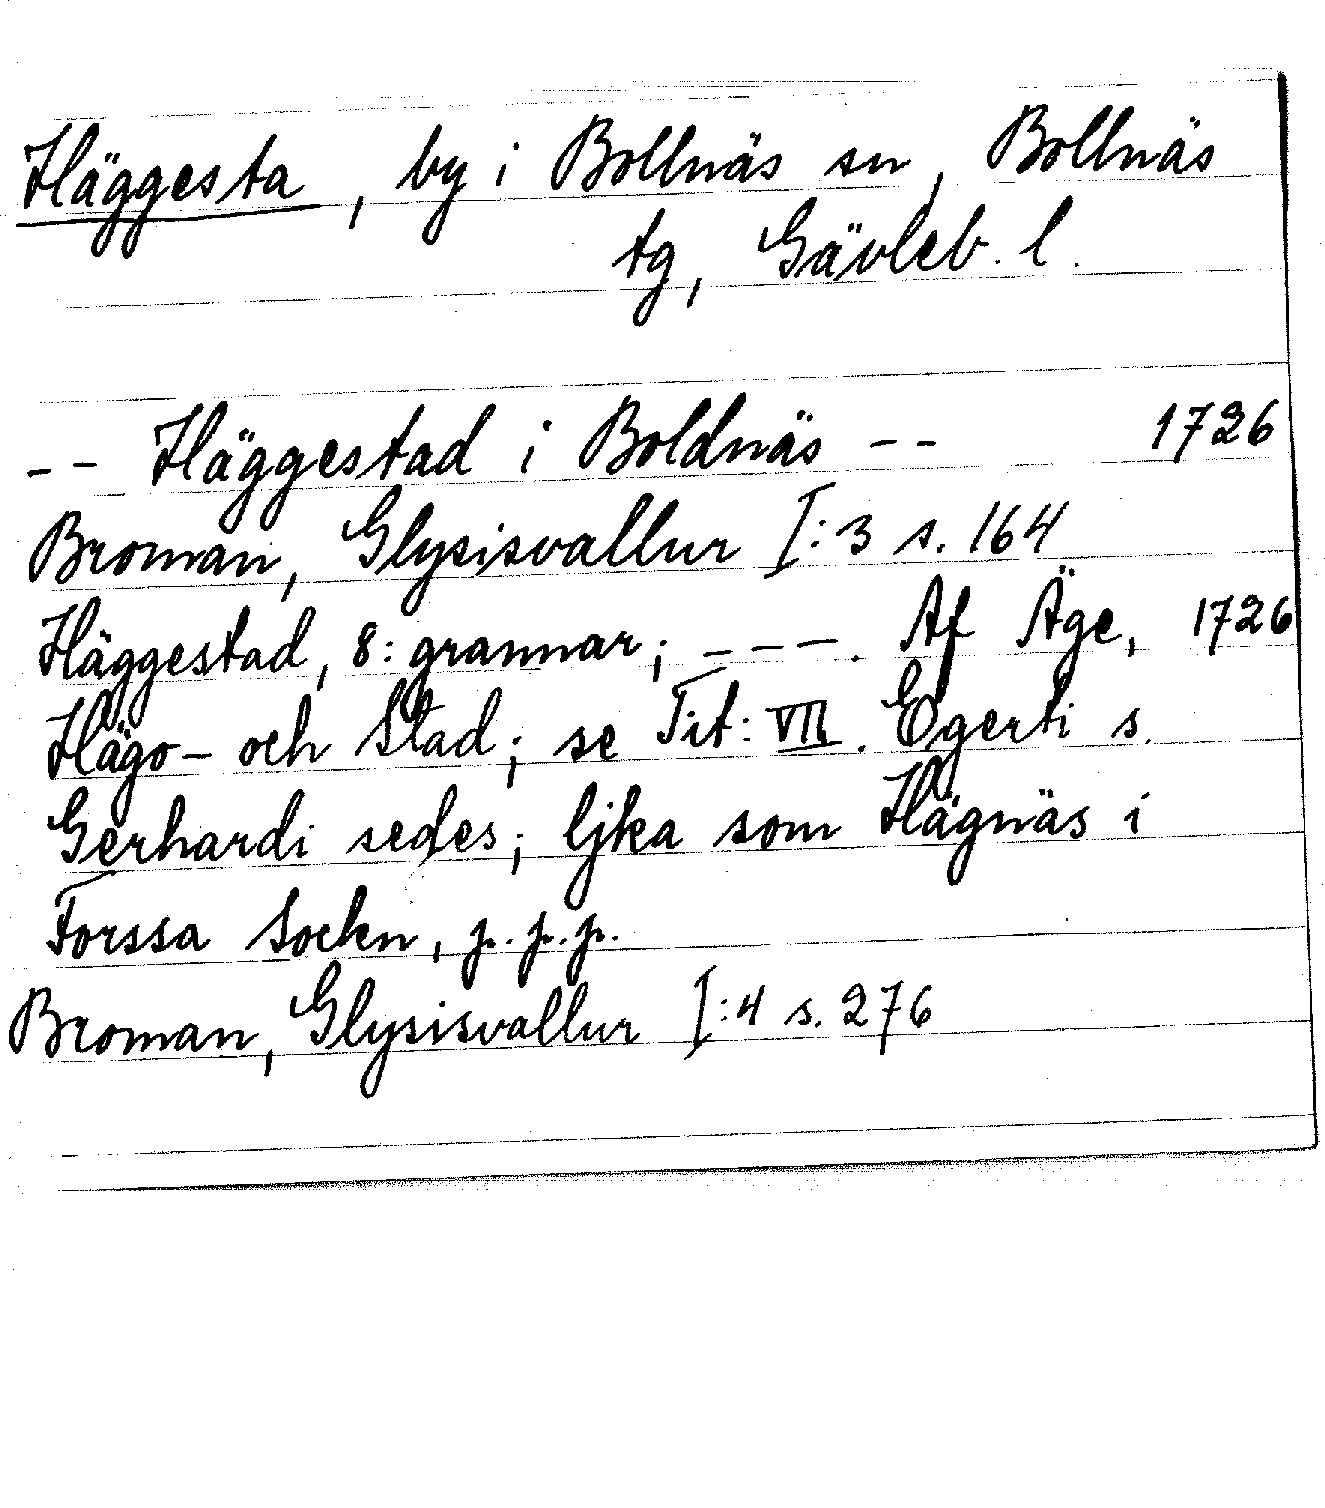 Häggesta, by i Bollnäs sn, Bollnäs
tg, Gävleb. l.
-- Häggestad i Boldnäs -- 1726
Broman, Glysisvallur I:3 s. 164
Häggestad, 8: grannar; ---. Af Äge, 1726
Hägo- och Stad; se Tit: VII. Egerti s.
Gerhardi sedes; ljka som Hägnäs i
Forssa Sockn, p.p.p.
Broman, Glysisvallur I:4 s. 276